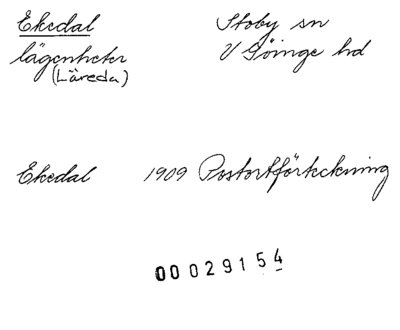 Ekedal Stoby sn
lägenheter V Göinge hd
(Läreda)
Ekedal 1909 Postortförteckning
00029154